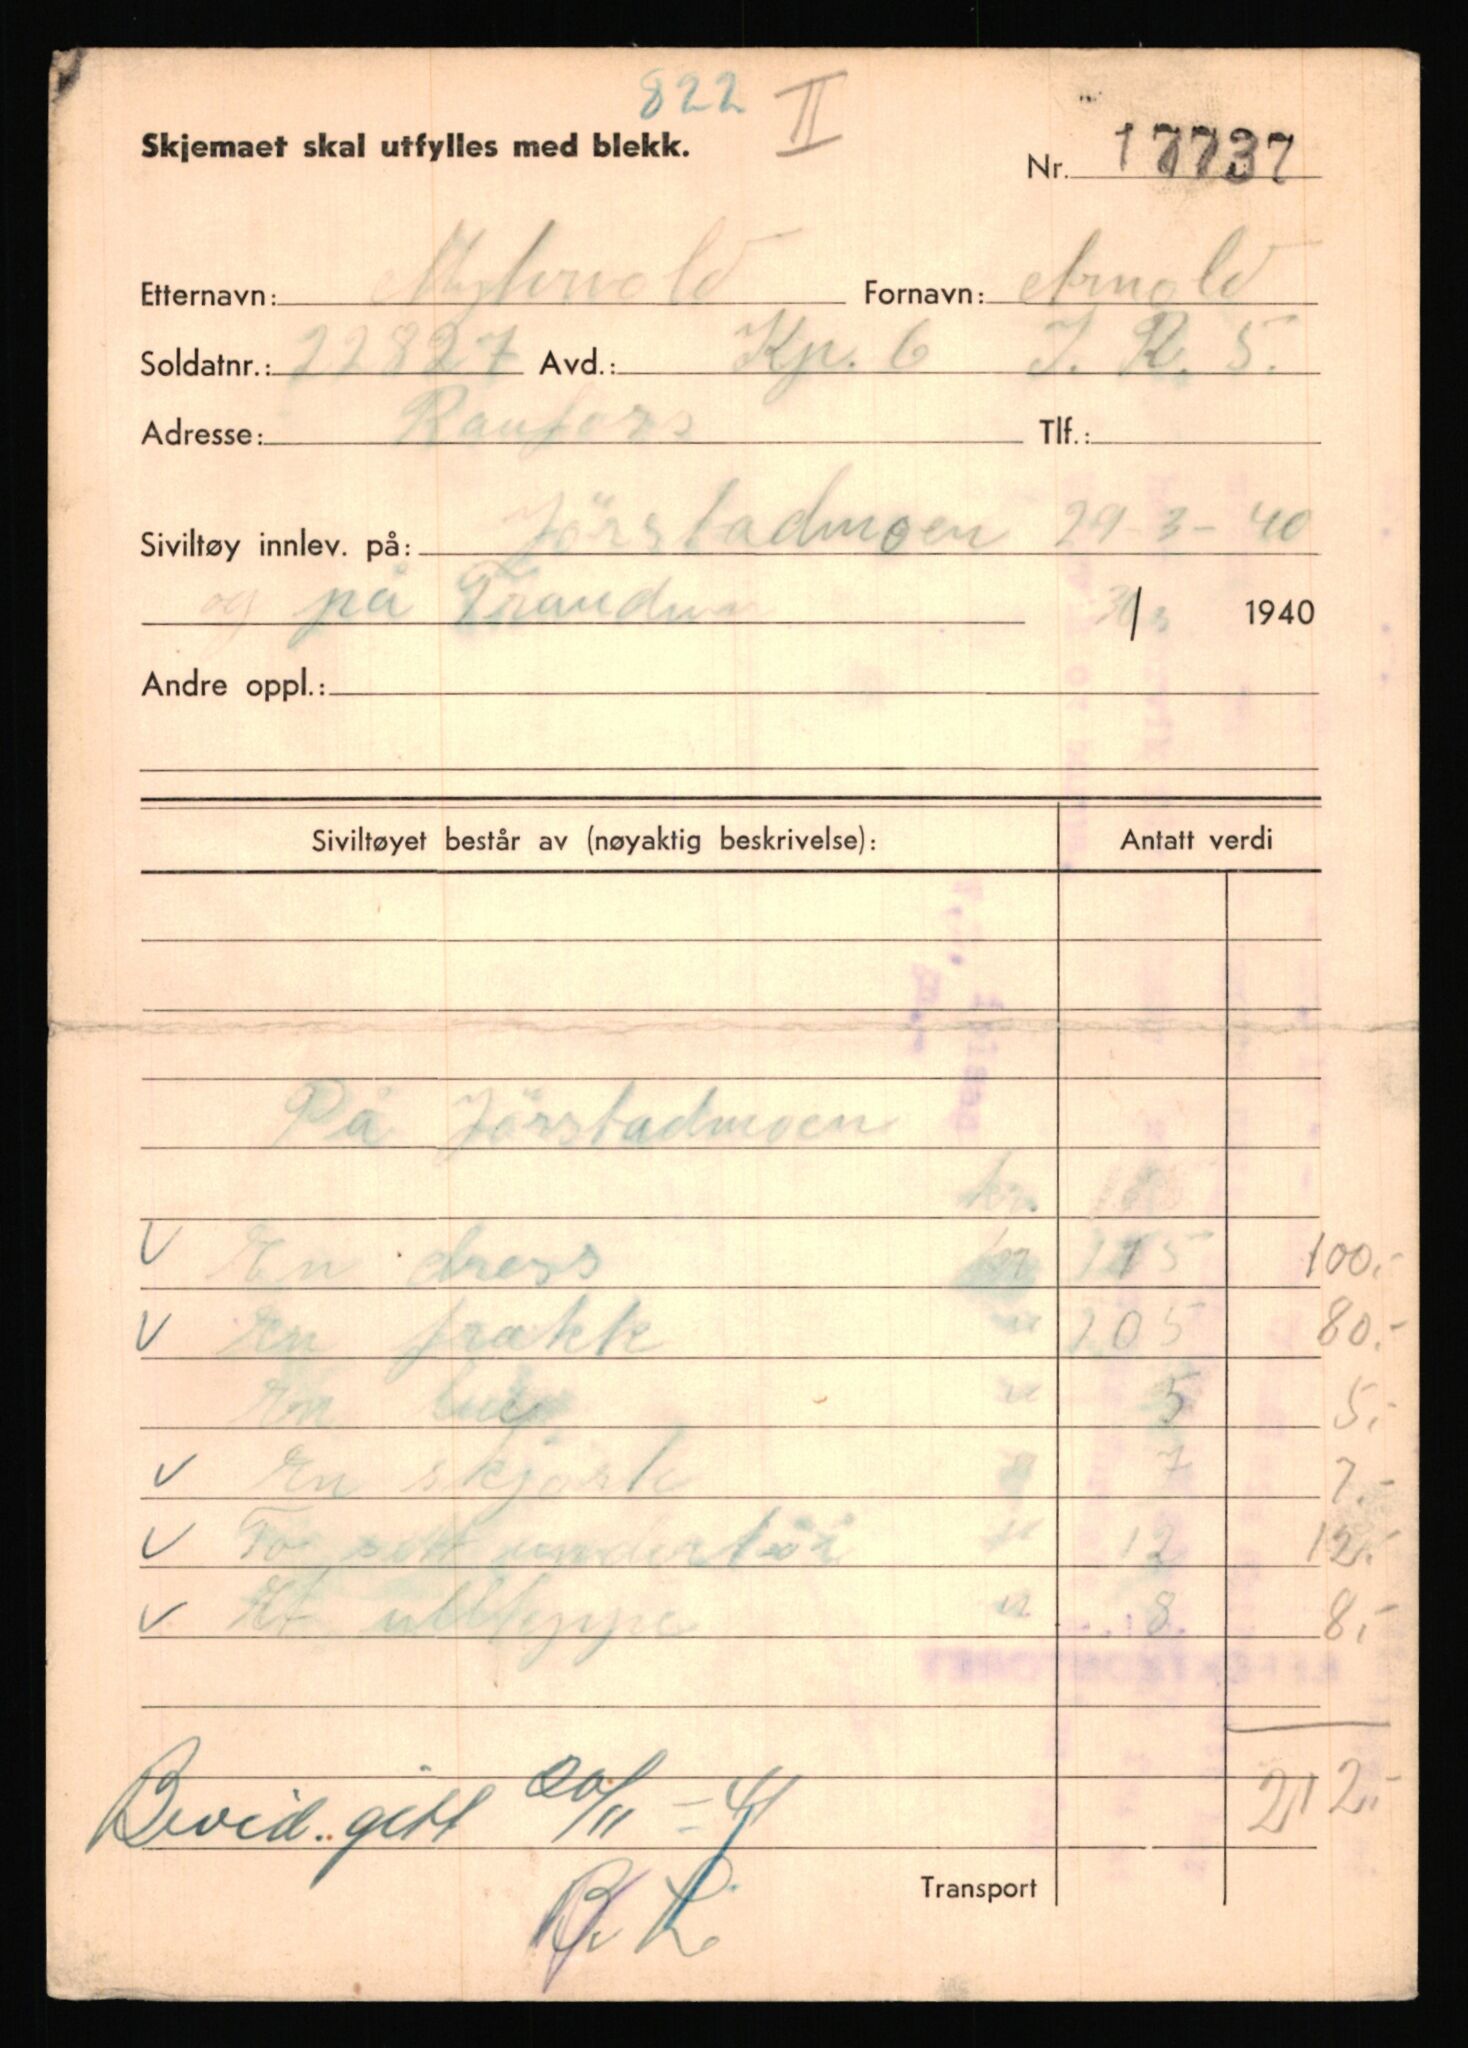 822 II
Skjemaet skal utfylles med blekk.
Nr. 17737
Etternavn: Myhrvold Fornavn: Arnold
Soldatnr.: 22827 Avd.: Kp. 6 I. R. 5.
Adresse: Raufoss Tlf.:
Siviltøy innlev. på: Jörstadmoen 29-3-40
og på Trandum / 1940
Andre oppl.:
Siviltøyet består av (nøyaktig beskrivelse): Antatt verdi
På Jörstadmoen
kr.
V En dress kr 100.-
V En frakk " 205 80.-
En " 5 5.-
V En skjorte " 7 7.-
V To sett undertöi " 12 12.-
V Et ullteppe " 8 8.-
212.-
Bevid. gitt 20/11 - 41
Transport
B. R.